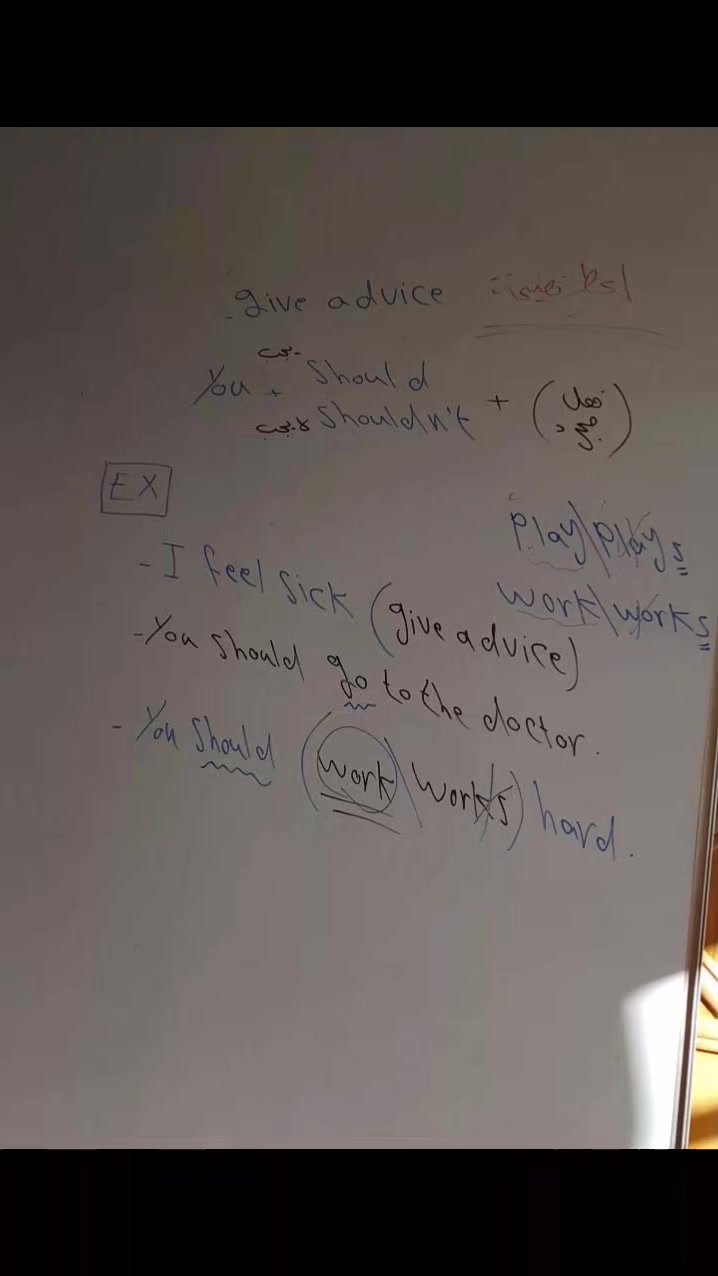 - give advice اعط نصيحة
يجب
You + Should
لا يجب Shouldn't + (فعل مجرد)
EX
play\plays
work\works
- I feel sick (give advice)
- You should go to the doctor.
- You should (work\works) hard.